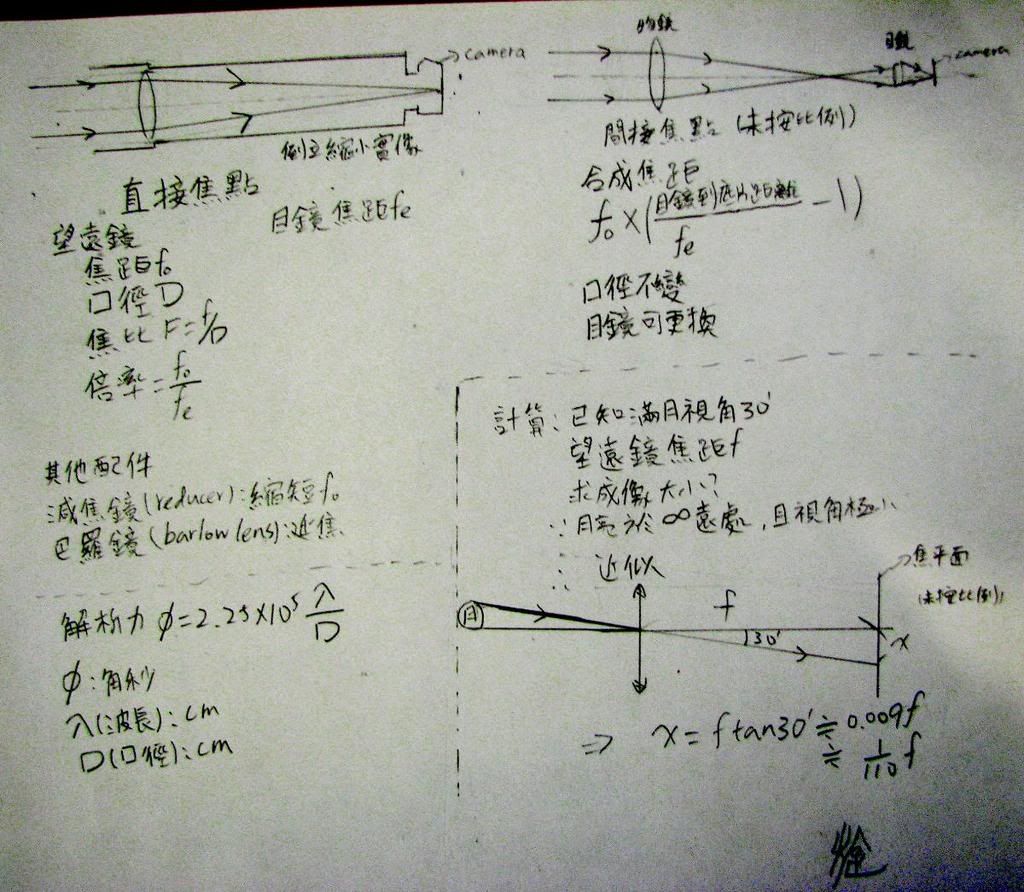 camera
倒立縮小實像
直接焦點
目鏡焦距fe
望遠鏡
焦距fo
口徑D
焦比 F=f/D
倍率=fo/fe
其他配件
減焦鏡(reducer):縮短fo
巴羅鏡(barlow lens):延焦
解析力 φ=2.25×10⁵ λ/D
φ:角秒
λ(波長):cm
D(口徑):cm
物鏡
目鏡
camera
間接焦點(未按比例)
合成焦距
fo×(目鏡到底片距離/fe -1)
口徑不變
目鏡可更換
計算:已知滿月視角30'
望遠鏡焦距f
求成像大小?
∵月亮於∞遠處,且視角極小
∴近似
焦平面
(未按比例)
月
f
30'
x
⇒ x=f tan30'≒0.009f
≒1/110 f